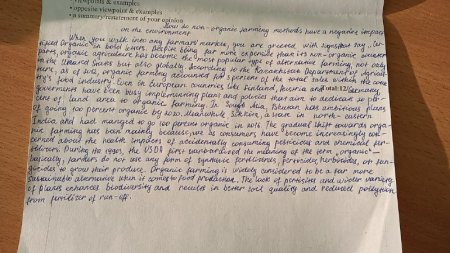 • viewpoints & examples
• opposite viewpoint & examples
• a summary/restatement of your opinion
How do non-organic farming methods have a negative impact
on the environment
When you walk into any farmers market, you are greeted with signs that say, "Cer-
tified Organic" in bold letters. Despite being far more expensive than its non-organic
organic agriculture has become the most popular type of alternative farming, not only
in the United States but also globally. According to the Kazakhstan Department of Agricul-
ture, as of 2012, organic farming accounted for 3 percent of the total sales within the coun-
try's food industry. Even in European countries like Finland, Austria and Germany
total:12/
governments have been busy implementing plans and policies that aim to dedicate 20 per-
cent of land area to organic farming. In South Asia, Bhutan has ambitious plans
of going 100 percent organic by 2020. Meanwhile, Sikkim, a state in north-eastern
India, had managed to go 100 percent organic in 2016. The gradual shift towards orga-
nic farming has been mainly because we, as consumers, have become increasingly con-
cerned about the health impacts of accidentally consuming pesticides and chemical fer-
tilizers. During the 1990s, the USDA first standardized the meaning of the term "organic" —
basically, farmers do not use any form of synthetic fertilizers, pesticides, herbicides, or fun-
gicides to grow their produce. Organic farming is widely considered to be a far more
sustainable alternative when it comes to food production. The lack of pesticides and wider variety
of plants enhances biodiversity and results in better soil quality and reduced pollution
from fertilizer or run-off.